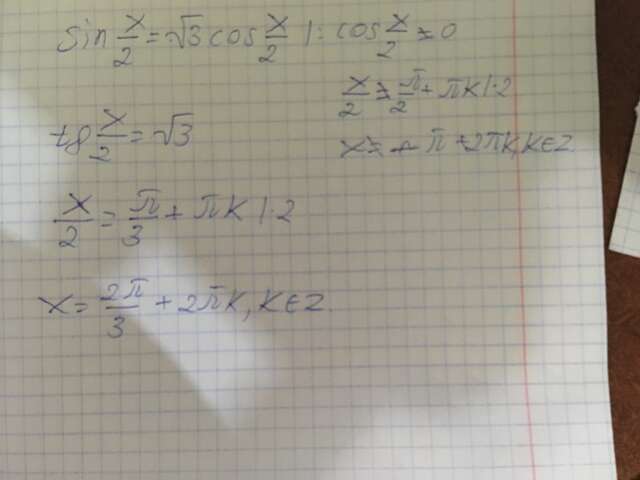 sin x/2 = √3 cos x/2 |: cos x/2 ≠ 0
x/2 ≠ π/2 + πK |·2
tg x/2 = √3
x ≠ π + 2πK, K∈Z
x/2 = π/3 + πK |·2
x = 2π/3 + 2πK, K∈Z.